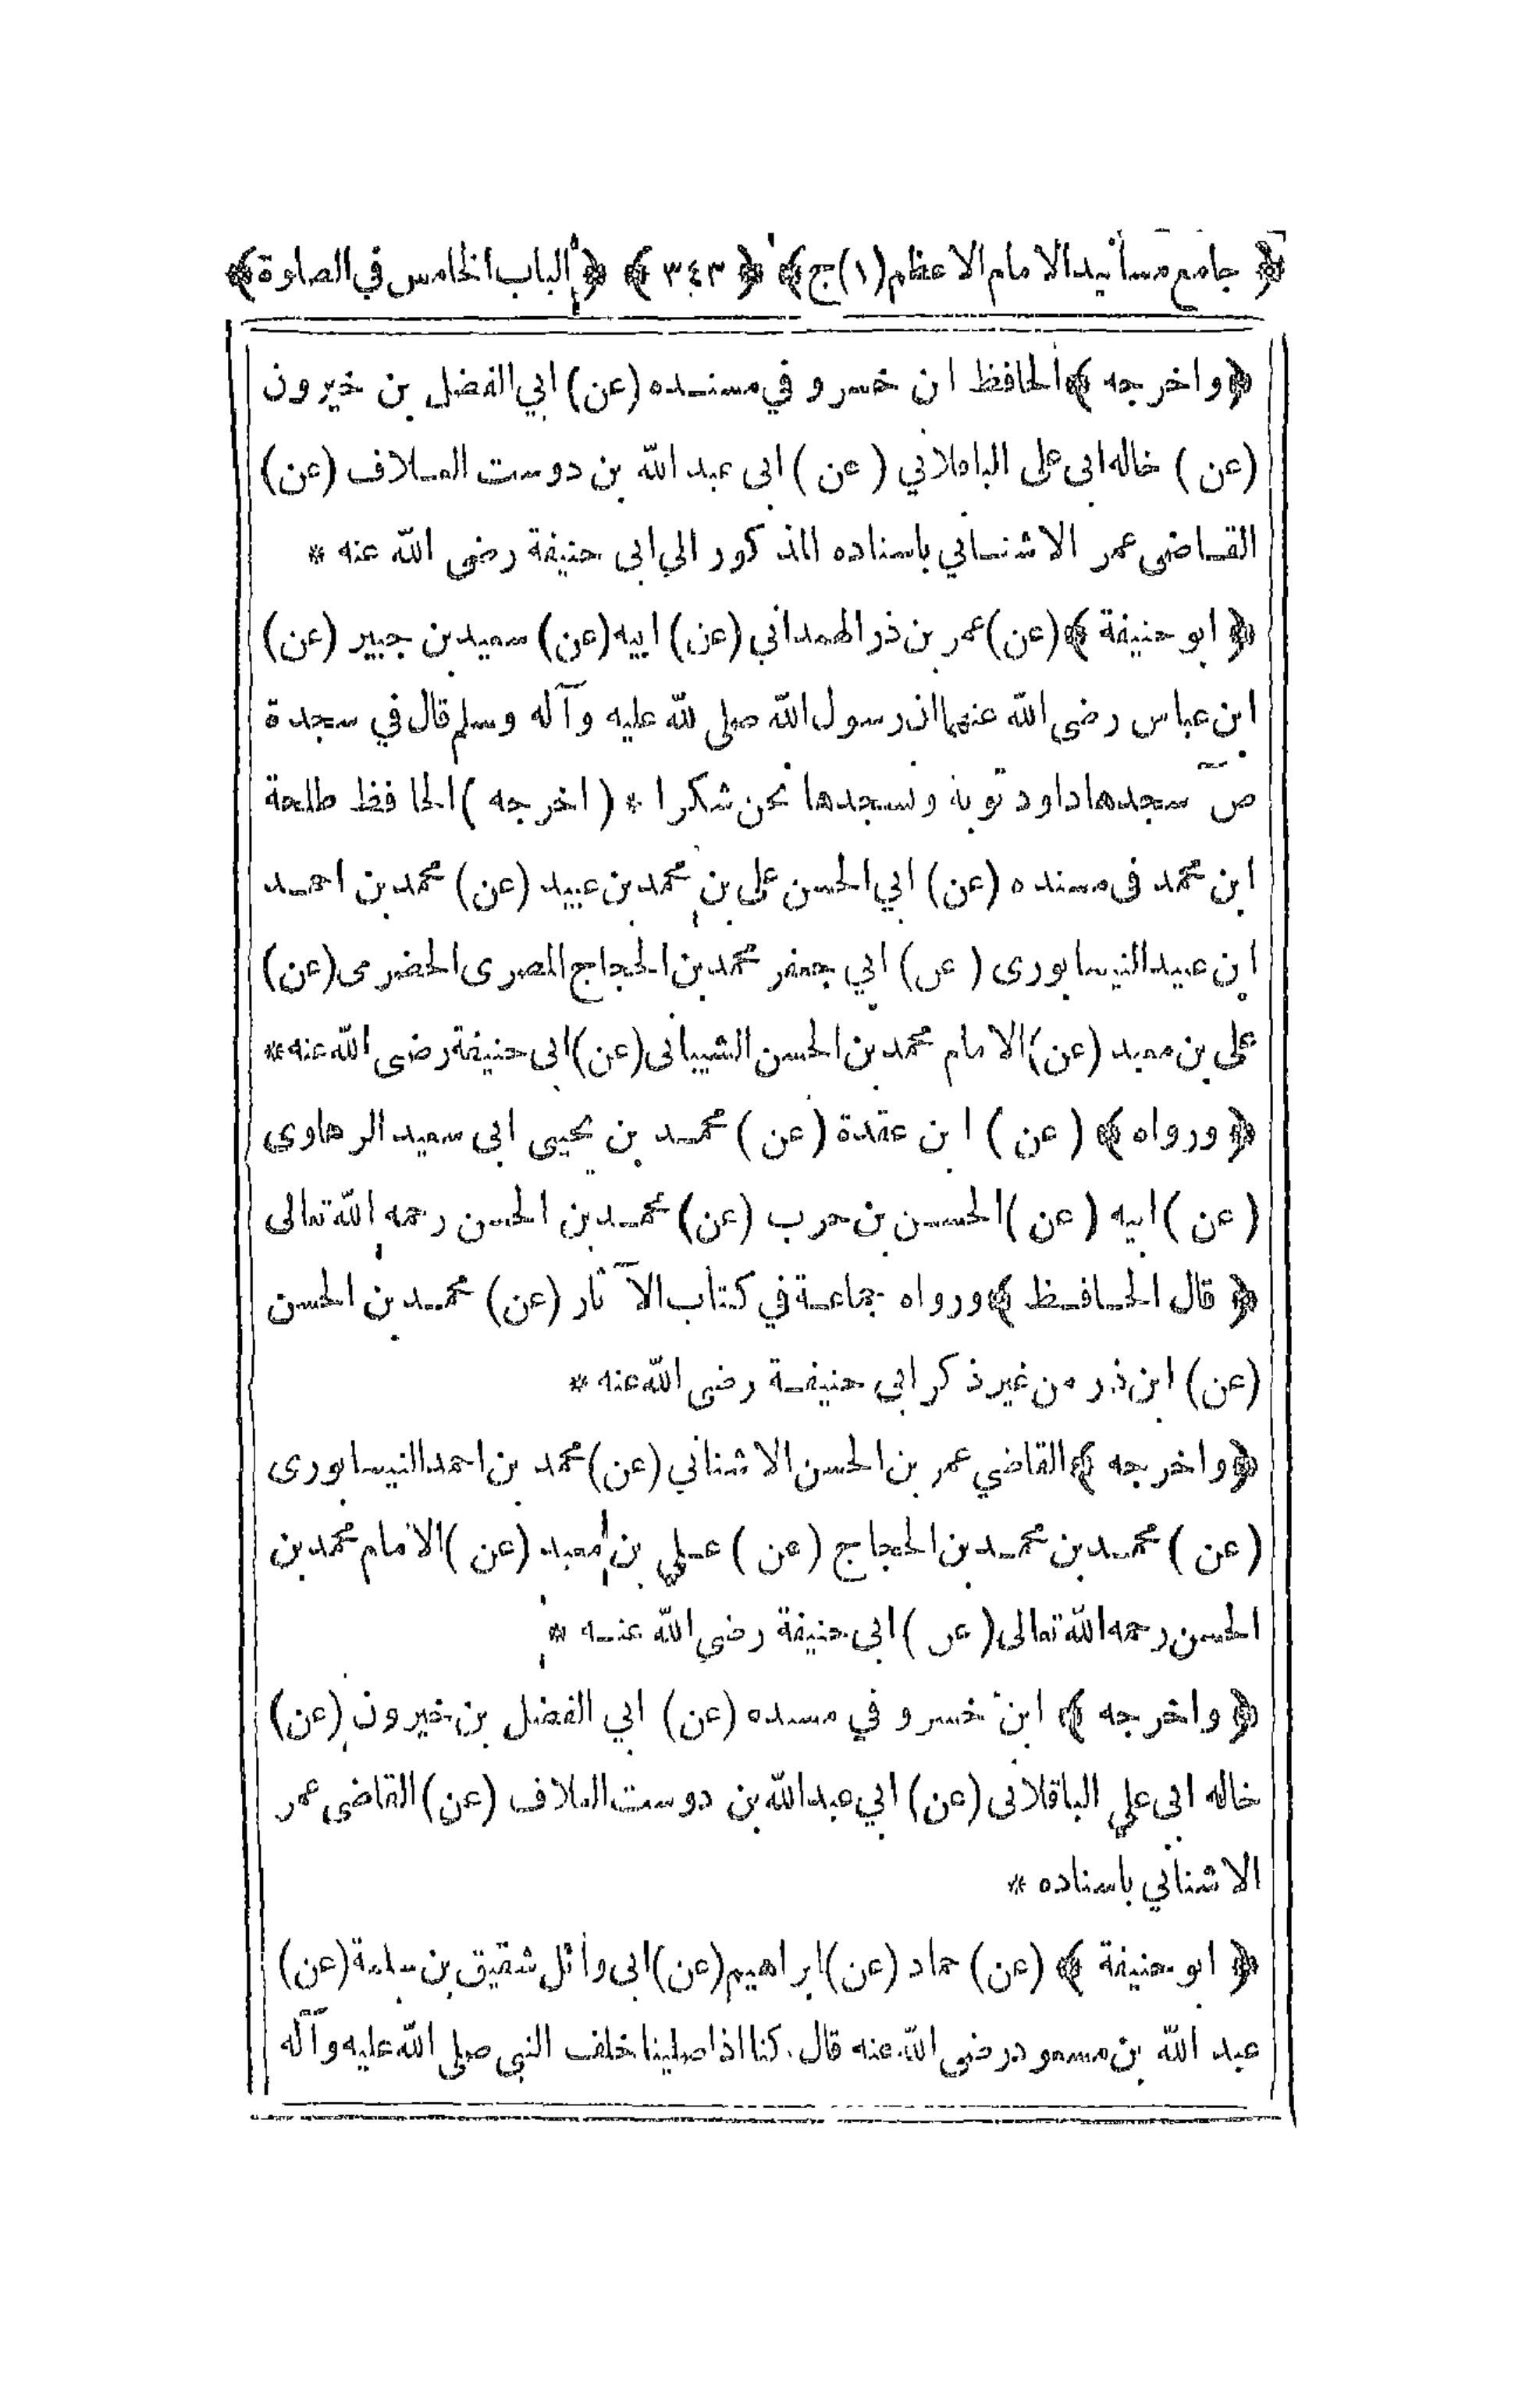 ﴿ جامع مسانيد الامام الاعظم (١) ج ﴾ ﴿ ٣٤٣ ﴾ ﴿ الباب الخامس في الصلوة ﴾
﴿ واخرجه ﴾ الحافظ ابن خسرو في مسنده (عن) ابي الفضل بن خيرون
(عن) خاله ابى على الباقلاني (عن) ابى عبد الله بن دوست العلاف (عن)
القاضى عمر الاشناني باسناده المذكور الي ابى حنيفة رضى الله عنه *
﴿ ابو حنيفة ﴾ (عن) عمر بن ذر الهمداني (عن) ابيه (عن) سعيد بن جبير (عن)
ابن عباس رضى الله عنهما ان رسول الله صلى لله عليه وآله وسلم قال في سجدة
صٓ سجدها داود توبة ونسجدها نحن شكرا * (اخرجه) الحافظ طلحة
ابن محمد فى مسنده (عن) ابي الحسن على بن محمد بن عبيد (عن) محمد بن احمد
ابن عبيد النيسابورى (عن) ابي جعفر محمد بن الحجاج المصرى الحضرمى (عن)
على بن معبد (عن) الامام محمد بن الحسن الشيبانى (عن) ابى حنيفة رضى الله عنه *
﴿ ورواه ﴾ (عن) ابن عقدة (عن) محمد بن يحيى ابى سعيد الرهاوى
(عن) ابيه (عن) الحسن بن حرب (عن) محمد بن الحسن رحمه الله تعالى
﴿ قال الحافظ ﴾ ورواه جماعة في كتاب الآثار (عن) محمد بن الحسن
(عن) ابن ذر من غير ذكر ابى حنيفة رضى الله عنه *
﴿ واخرجه ﴾ القاضي عمر بن الحسن الاشناني (عن) محمد بن احمد النيسابورى
(عن) محمد بن محمد بن الحجاج (عن) علي بن معبد (عن) الامام محمد بن
الحسن رحمه الله تعالى (عن) ابى حنيفة رضى الله عنه *
﴿ واخرجه ﴾ ابن خسرو في مسنده (عن) ابي الفضل بن خيرون (عن)
خاله ابى علي الباقلانى (عن) ابي عبد الله بن دوست العلاف (عن) القاضى عمر
الاشناني باسناده *
﴿ ابو حنيفة ﴾ (عن) حماد (عن) ابراهيم (عن) ابى وائل شقيق بن سلمة (عن)
عبد الله بن مسعود رضى الله عنه قال كنا اذا صلينا خلف النبي صلى الله عليه وآله